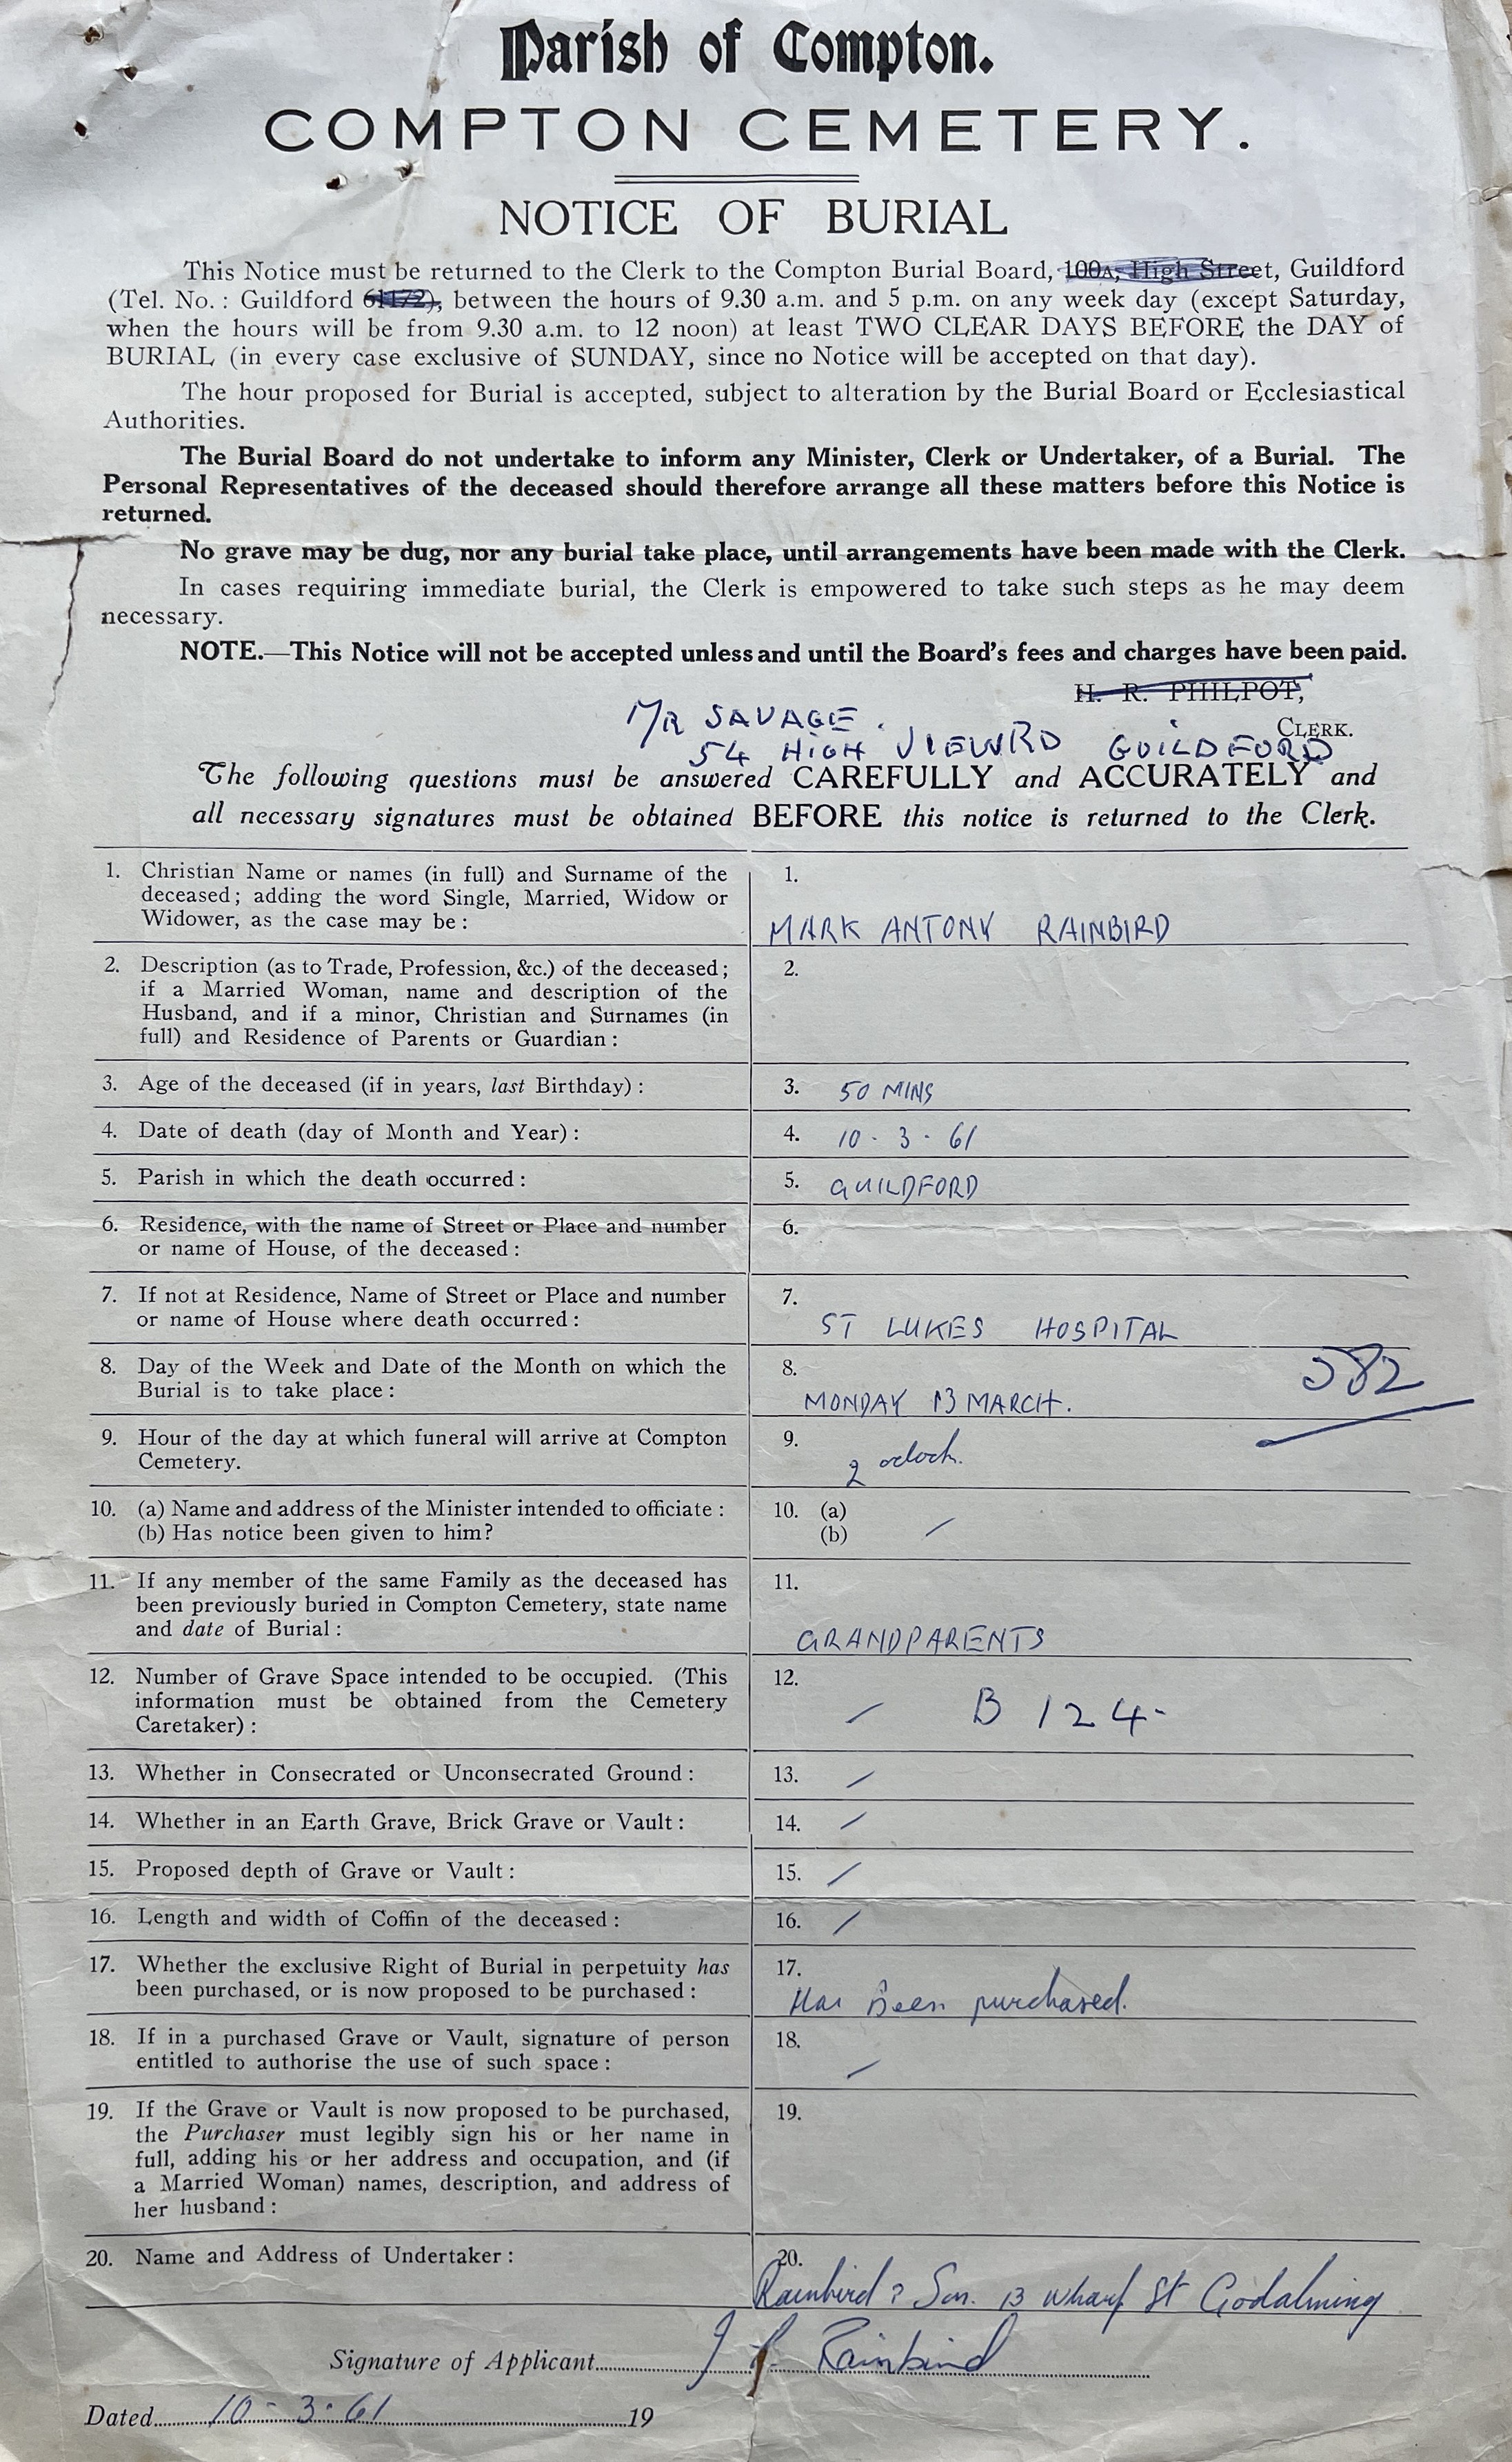 Parish of Compton.
COMPTON CEMETERY.
NOTICE OF BURIAL
This Notice must be returned to the Clerk to the Compton Burial Board, 100A, High Street, Guildford
(Tel. No.: Guildford 61172), between the hours of 9.30 a.m. and 5 p.m. on any week day (except Saturday,
when the hours will be from 9.30 a.m. to 12 noon) at least TWO CLEAR DAYS BEFORE the DAY of
BURIAL (in every case exclusive of SUNDAY, since no Notice will be accepted on that day).
The hour proposed for Burial is accepted, subject to alteration by the Burial Board or Ecclesiastical
Authorities.
The Burial Board do not undertake to inform any Minister, Clerk or Undertaker, of a Burial. The
Personal Representatives of the deceased should therefore arrange all these matters before this Notice is
returned.
No grave may be dug, nor any burial take place, until arrangements have been made with the Clerk.
In cases requiring immediate burial, the Clerk is empowered to take such steps as he may deem
necessary.
NOTE.—This Notice will not be accepted unless and until the Board's fees and charges have been paid.
H. R. PHILPOT,
MR SAVAGE.
CLERK.
54 HIGH VIEW RD GUILDFORD
The following questions must be answered CAREFULLY and ACCURATELY and
all necessary signatures must be obtained BEFORE this notice is returned to the Clerk.
1. Christian Name or names (in full) and Surname of the
deceased; adding the word Single, Married, Widow or
Widower, as the case may be:
1.
MARK ANTONY RAINBIRD
2. Description (as to Trade, Profession, &c.) of the deceased;
if a Married Woman, name and description of the
Husband, and if a minor, Christian and Surnames (in
full) and Residence of Parents or Guardian:
2.
3. Age of the deceased (if in years, last Birthday):
3. 50 MINS
4. Date of death (day of Month and Year):
4. 10 - 3 - 61
5. Parish in which the death occurred:
5. GUILDFORD
6. Residence, with the name of Street or Place and number
or name of House, of the deceased:
6.
7. If not at Residence, Name of Street or Place and number
or name of House where death occurred:
7.
ST LUKES HOSPITAL
8. Day of the Week and Date of the Month on which the
Burial is to take place:
8.
MONDAY 13 MARCH.
582
9. Hour of the day at which funeral will arrive at Compton
Cemetery.
9.
2 oclock.
10. (a) Name and address of the Minister intended to officiate:
(b) Has notice been given to him?
10. (a)
(b) /
11. If any member of the same Family as the deceased has
been previously buried in Compton Cemetery, state name
and date of Burial:
11.
GRANDPARENTS
12. Number of Grave Space intended to be occupied. (This
information must be obtained from the Cemetery
Caretaker):
12.
/ B 124-
13. Whether in Consecrated or Unconsecrated Ground:
13. /
14. Whether in an Earth Grave, Brick Grave or Vault:
14. /
15. Proposed depth of Grave or Vault:
15. /
16. Length and width of Coffin of the deceased:
16. /
17. Whether the exclusive Right of Burial in perpetuity has
been purchased, or is now proposed to be purchased:
17.
Has Been purchased.
18. If in a purchased Grave or Vault, signature of person
entitled to authorise the use of such space:
18.
/
19. If the Grave or Vault is now proposed to be purchased,
the Purchaser must legibly sign his or her name in
full, adding his or her address and occupation, and (if
a Married Woman) names, description, and address of
her husband:
19.
20. Name and Address of Undertaker:
20.
Rainbird & Son. 13 Wharf St Godalming
Signature of Applicant J P. Rainbird
Dated 10 - 3 - 61 19